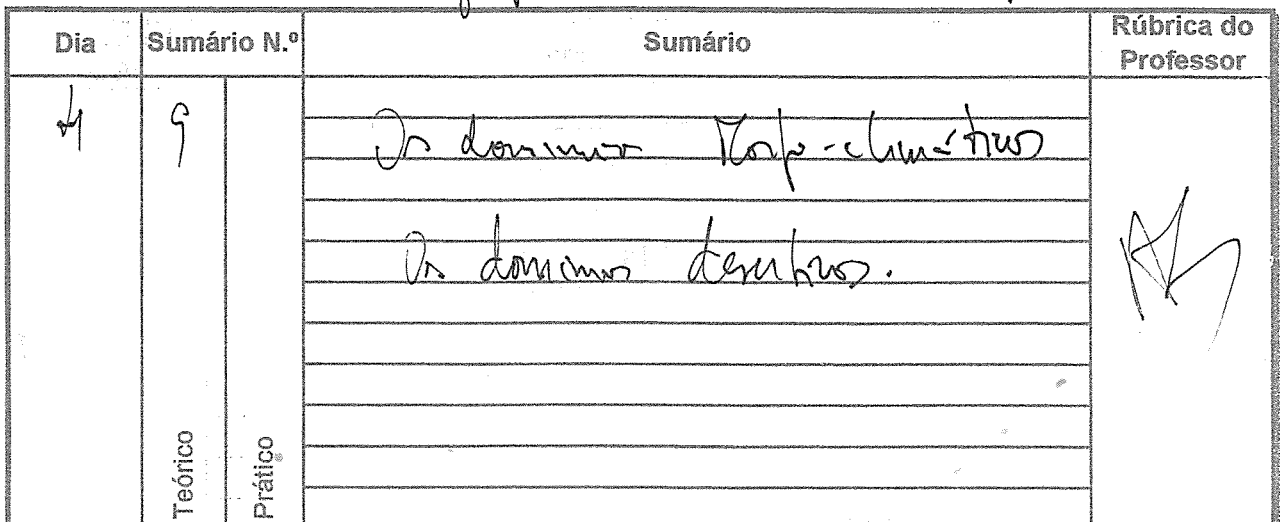 Dia Sumário N.º Sumário Rúbrica do Professor
9
Os dominios Morfo-climáticos
Os dominios deserticos.
Teórico
Prático